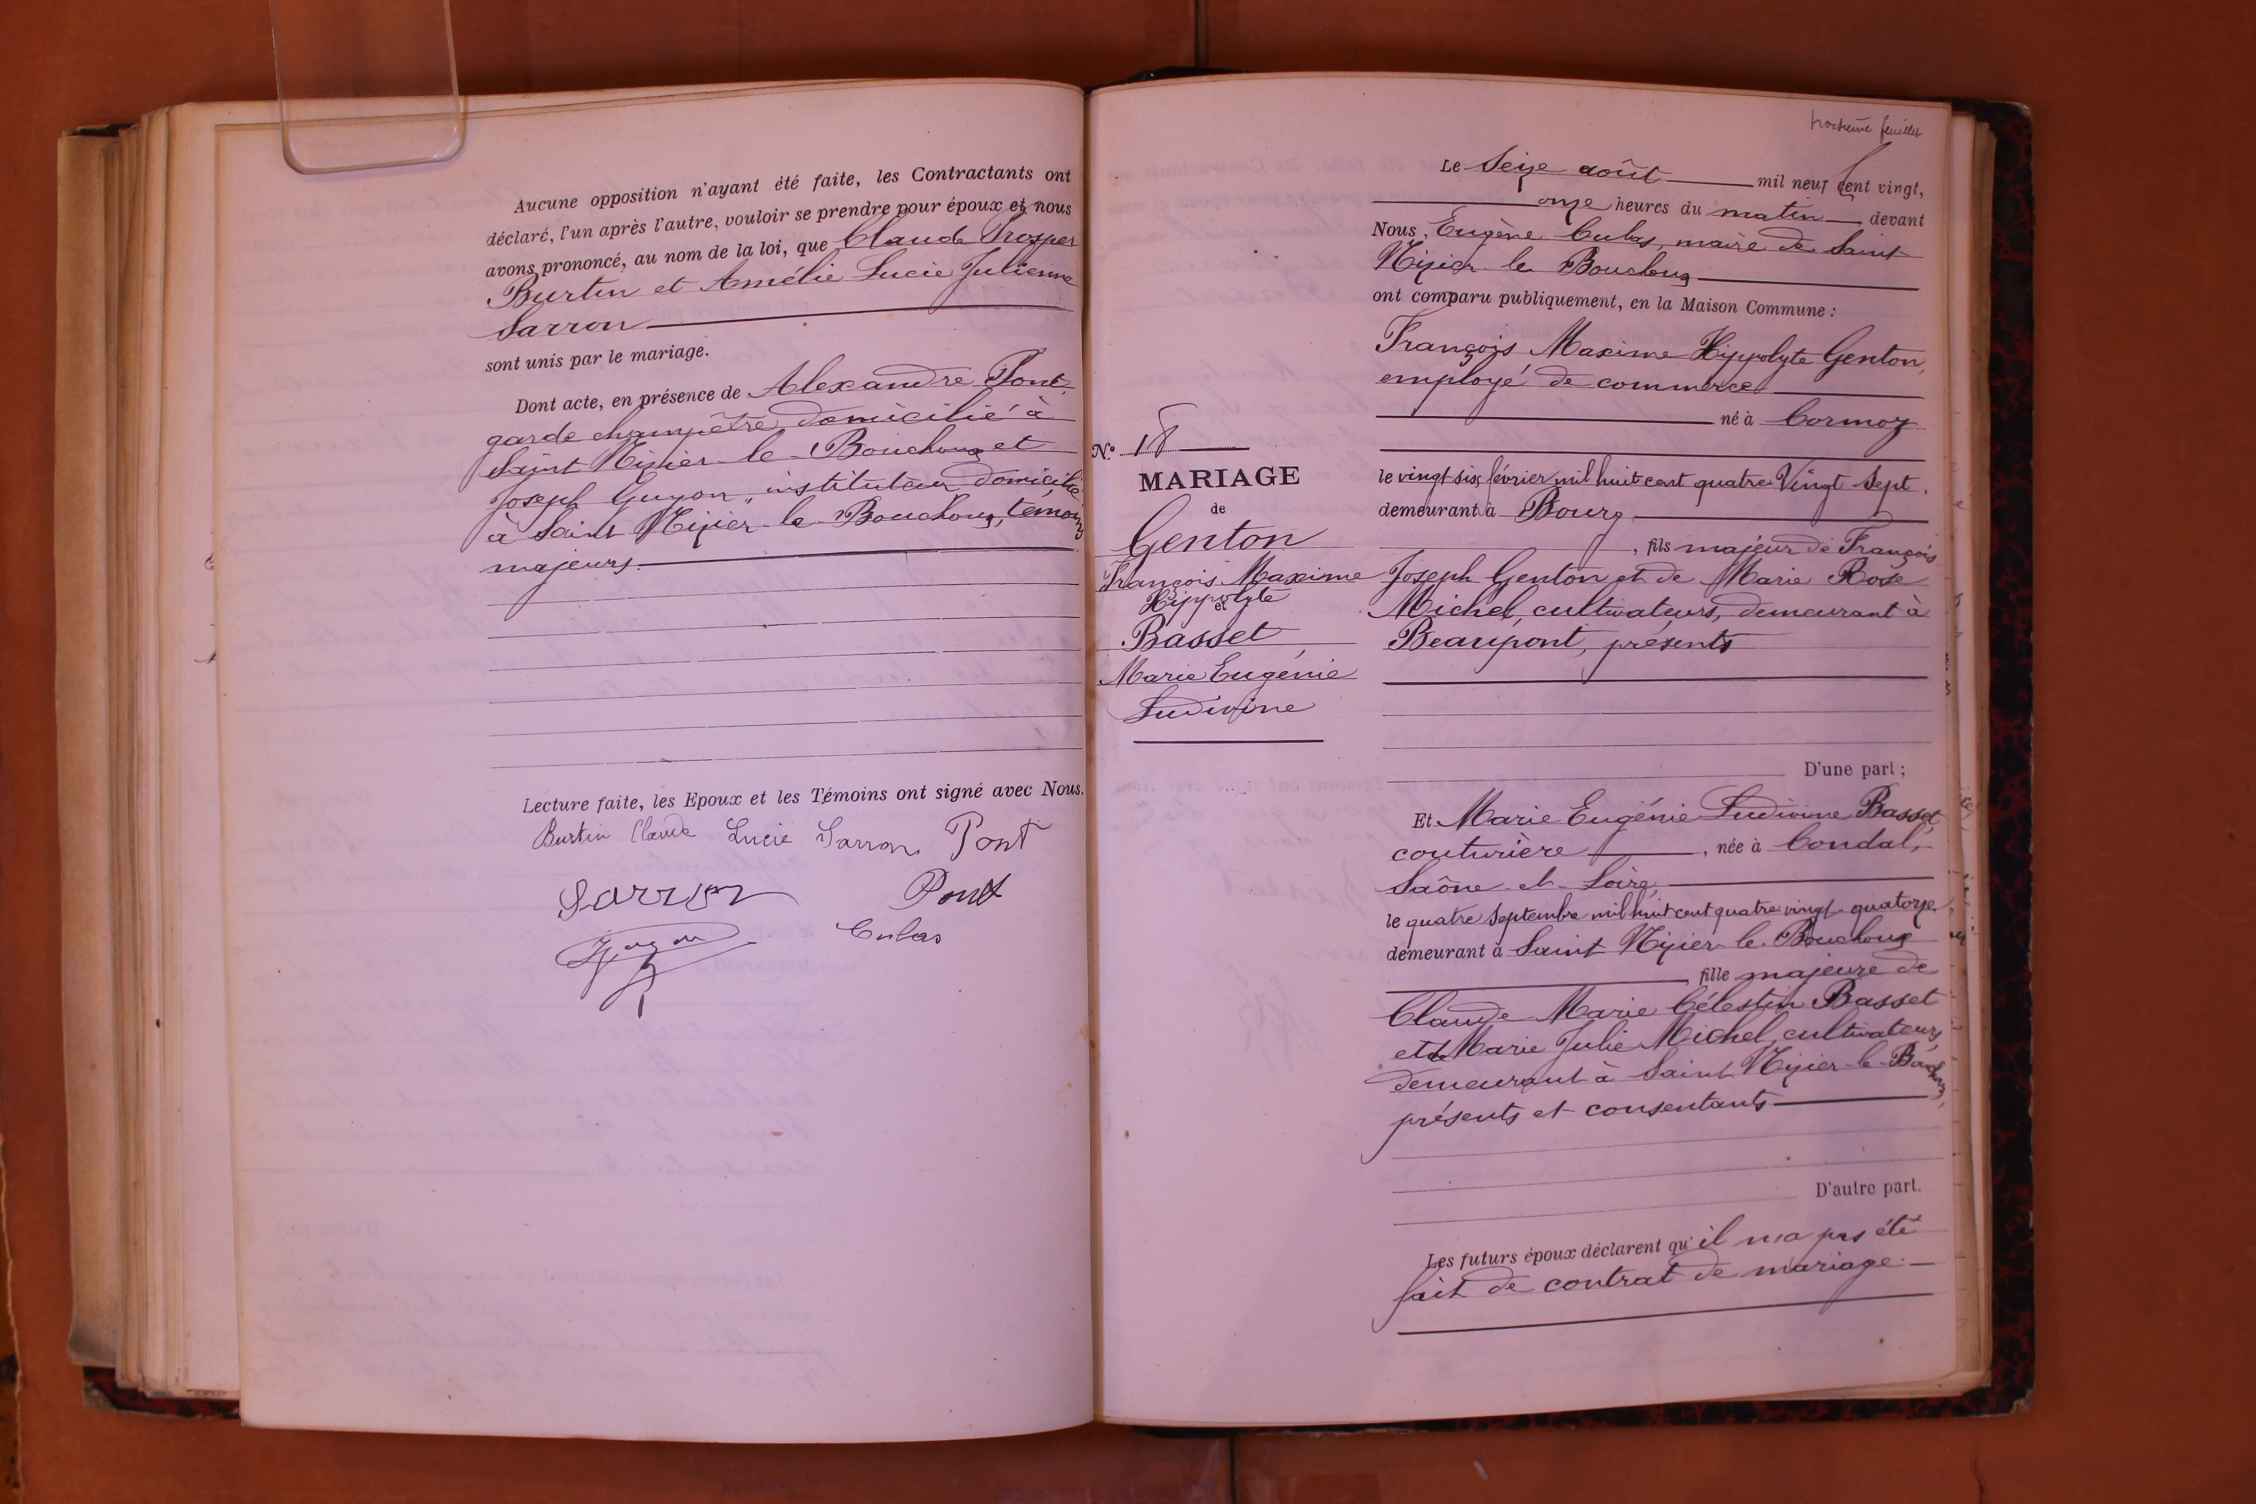 Aucune opposition n'ayant été faite, les Contractants ont
déclaré, l'un après l'autre, vouloir se prendre pour époux et nous
avons prononcé, au nom de la loi, que Claude Prosper
Burtin et Amélie Lucie Julienne
Sarron
sont unis par le mariage.
Dont acte, en présence de Alexandre Pont,
garde champêtre domicilié à
Saint Nizier-le-Bouchoux et
Joseph Guyon, instituteur domicilié
à Saint Nizier-le-Bouchoux, témoins
majeurs.
Lecture faite, les Epoux et les Témoins ont signé avec Nous.
Burtin Claude Lucie Sarron Pont
Sarron Pont
Guyon Cubas
feuillet
N.º 18
MARIAGE
de
Genton
François Maxime
Hippolyte
et
Basset
Marie Eugénie
Ludivine
Le Seize août mil neuf cent vingt,
onze heures du matin devant
Nous, Eugène Cubas, maire de Saint
Nizier-le-Bouchoux
ont comparu publiquement, en la Maison Commune :
François Maxime Hippolyte Genton,
employé de commerce
né à Cormoz
le vingt-six février mil huit cent quatre-Vingt-Sept.
demeurant à Bourg
, fils majeur de François
Joseph Genton et de Marie Rose
Michel, cultivateurs, demeurant à
Beaupont, présents
D'une part ;
Et Marie Eugénie Ludivine Basset,
couturière , née à Condal,
Saône-et-Loire,
le quatre Septembre mil huit cent quatre vingt-quatorze
demeurant à Saint Nizier-le-Bouchoux
, fille majeure de
Claude Marie Célestin Basset
et de Marie Julie Michel, cultivateurs,
demeurant à Saint Nizier-le-Bouchoux,
présents et consentants
D'autre part.
Les futurs époux déclarent qu'il n'a pas été
fait de contrat de mariage.